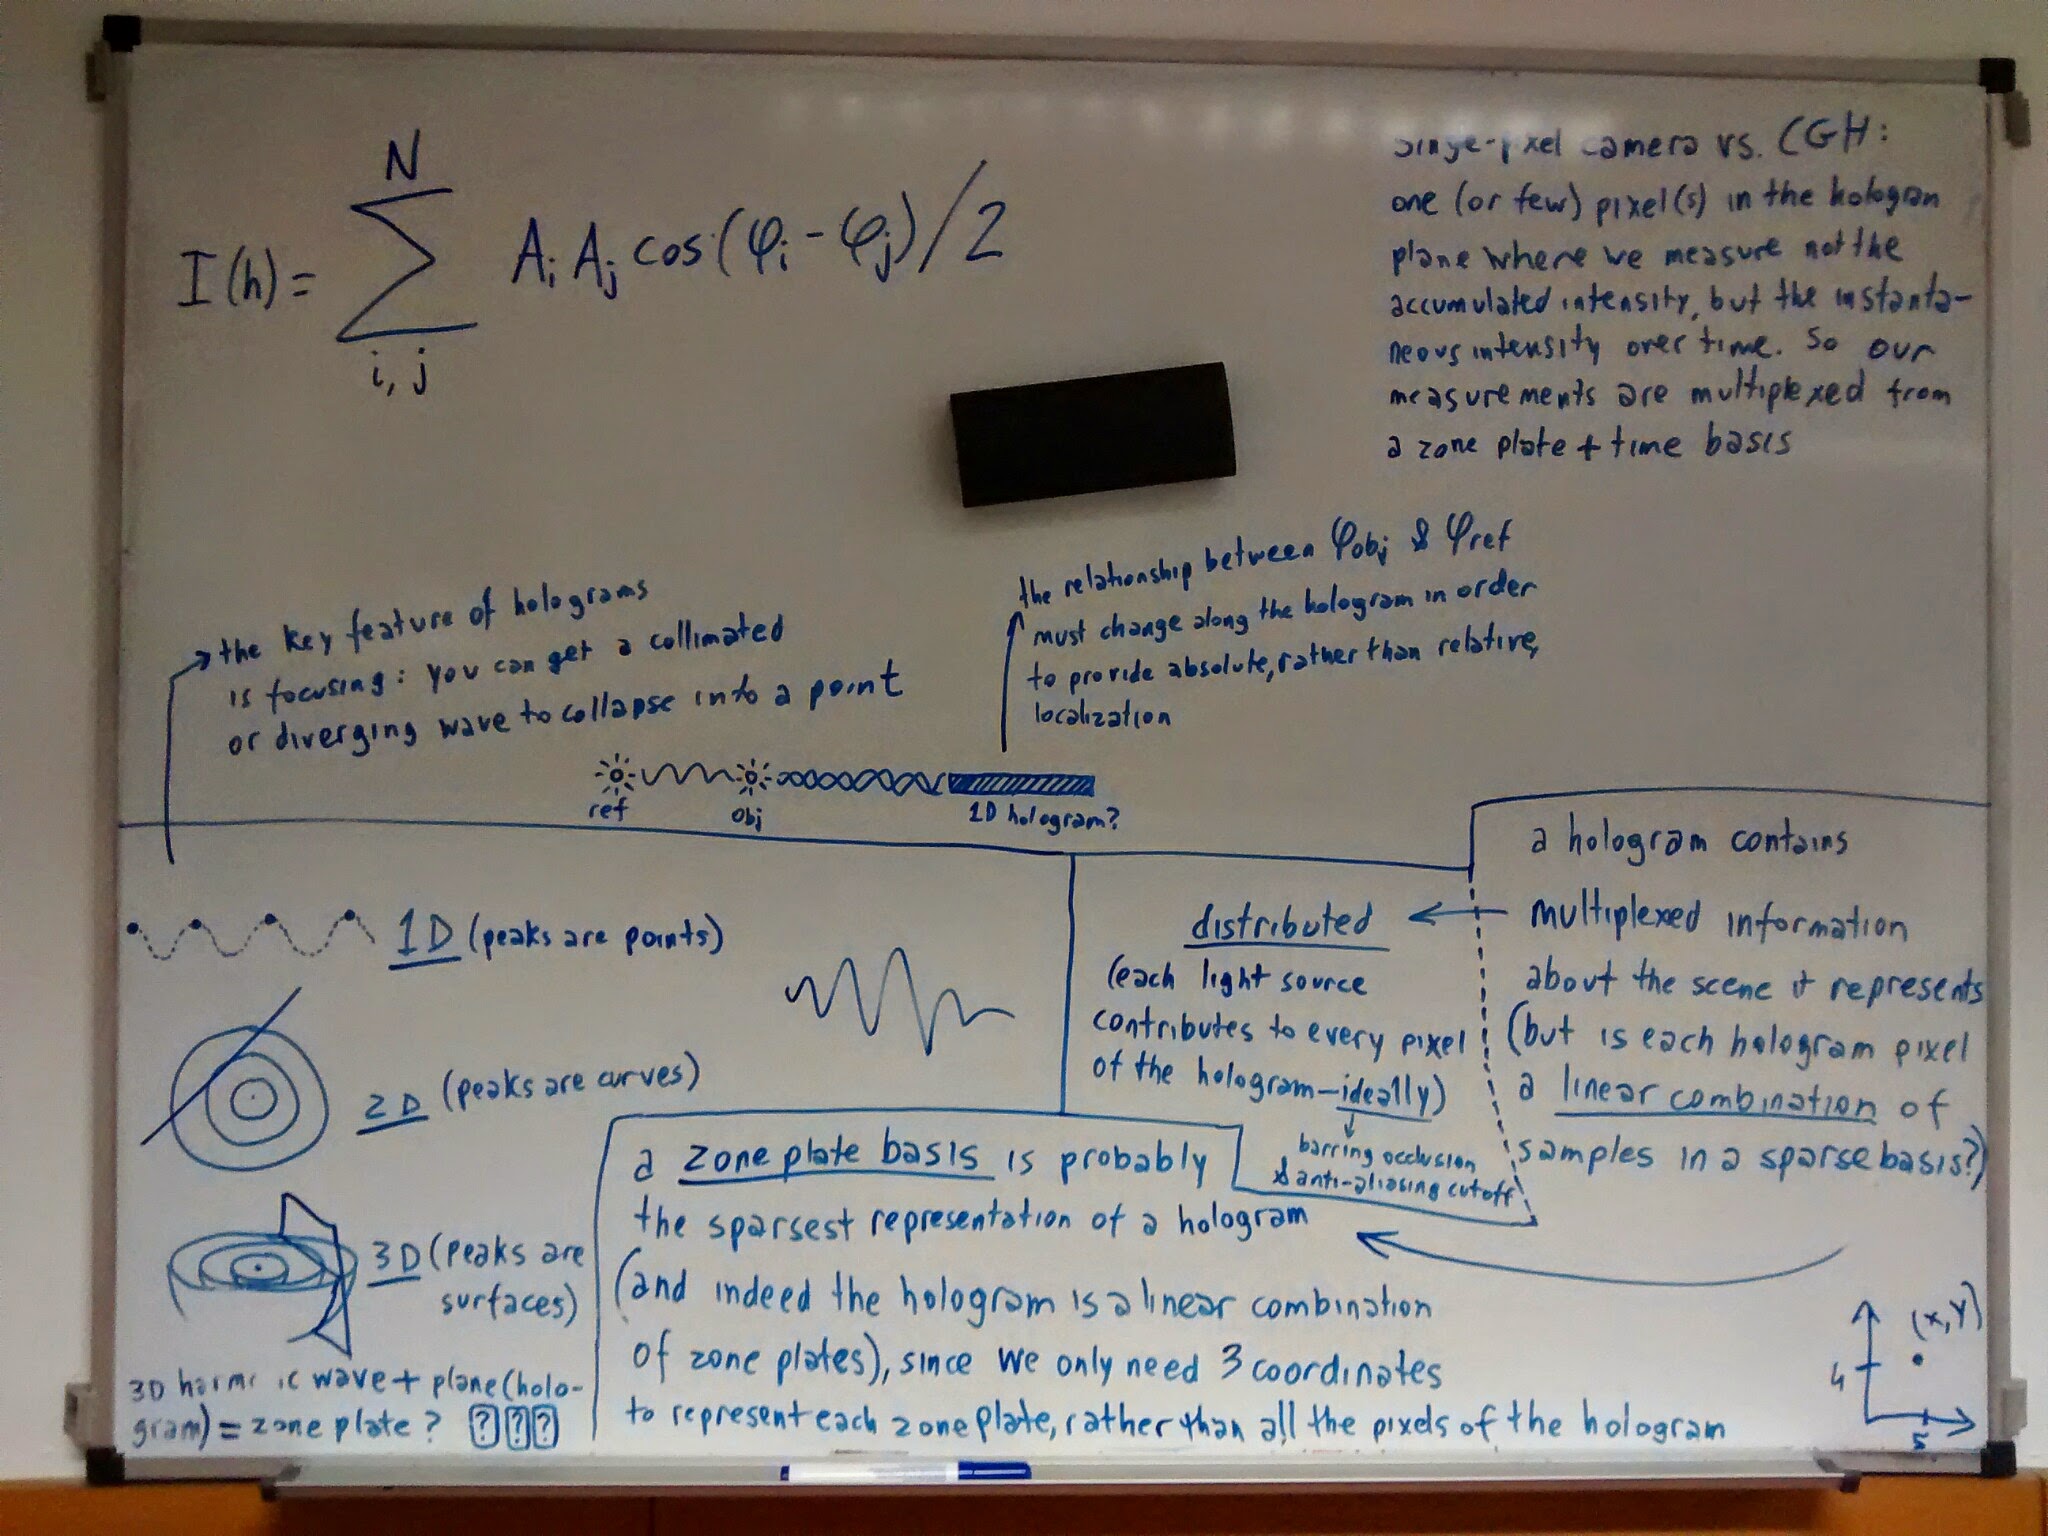 N
I(h) = ∑ Ai Aj cos(φi - φj)/2
i, j
Single-pixel camera vs. CGH:
one (or few) pixel(s) in the hologram
plane where we measure not the
accumulated intensity, but the instanta-
neous intensity over time. So our
measurements are multiplexed from
a zone plate + time basis
the key feature of holograms
is focusing: you can get a collimated
or diverging wave to collapse into a point
the relationship between φobj & φref
must change along the hologram in order
to provide absolute, rather than relative,
localization
ref
obj
1D hologram?
1D (peaks are points)
2D (peaks are curves)
3D (peaks are
surfaces)
3D harmonic wave + plane (holo-
gram) = zone plate? ???
distributed
(each light source
contributes to every pixel
of the hologram—ideally)
barring occlusion
& anti-aliasing cutoff
a hologram contains
multiplexed information
about the scene it represents
(but is each hologram pixel
a linear combination of
samples in a sparse basis?)
a zone plate basis is probably
the sparsest representation of a hologram
(and indeed the hologram is a linear combination
of zone plates), since we only need 3 coordinates
to represent each zone plate, rather than all the pixels of the hologram
(x,y)
4
5